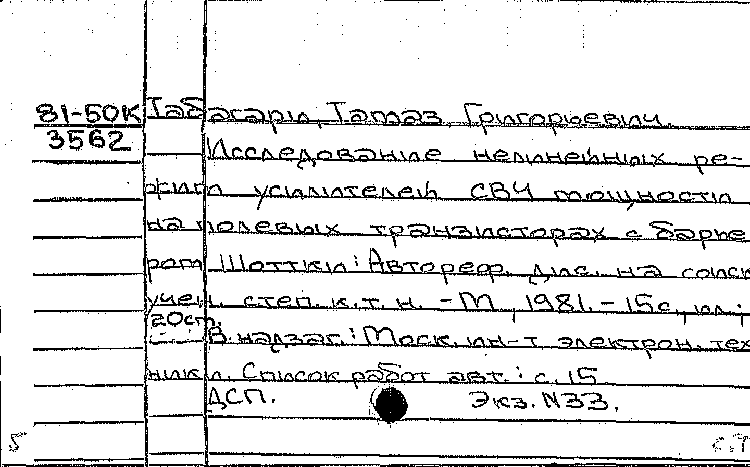 81-50К Табагари, Тамаз Григорьевич.
3562 Исследование нелинейных ре-
жим усилителей СВЧ мощности
на полевых транзисторах с барье
ром Шоттки: Автореф. дис. на соиск
учен. степ. к.т.н. - М, 1981. - 15с., ил.;
20см.
В надзаг.: Моск. ин-т электрон. тех
ники. Список работ авт.: с. 15
ДСП. Экз. N33.
5